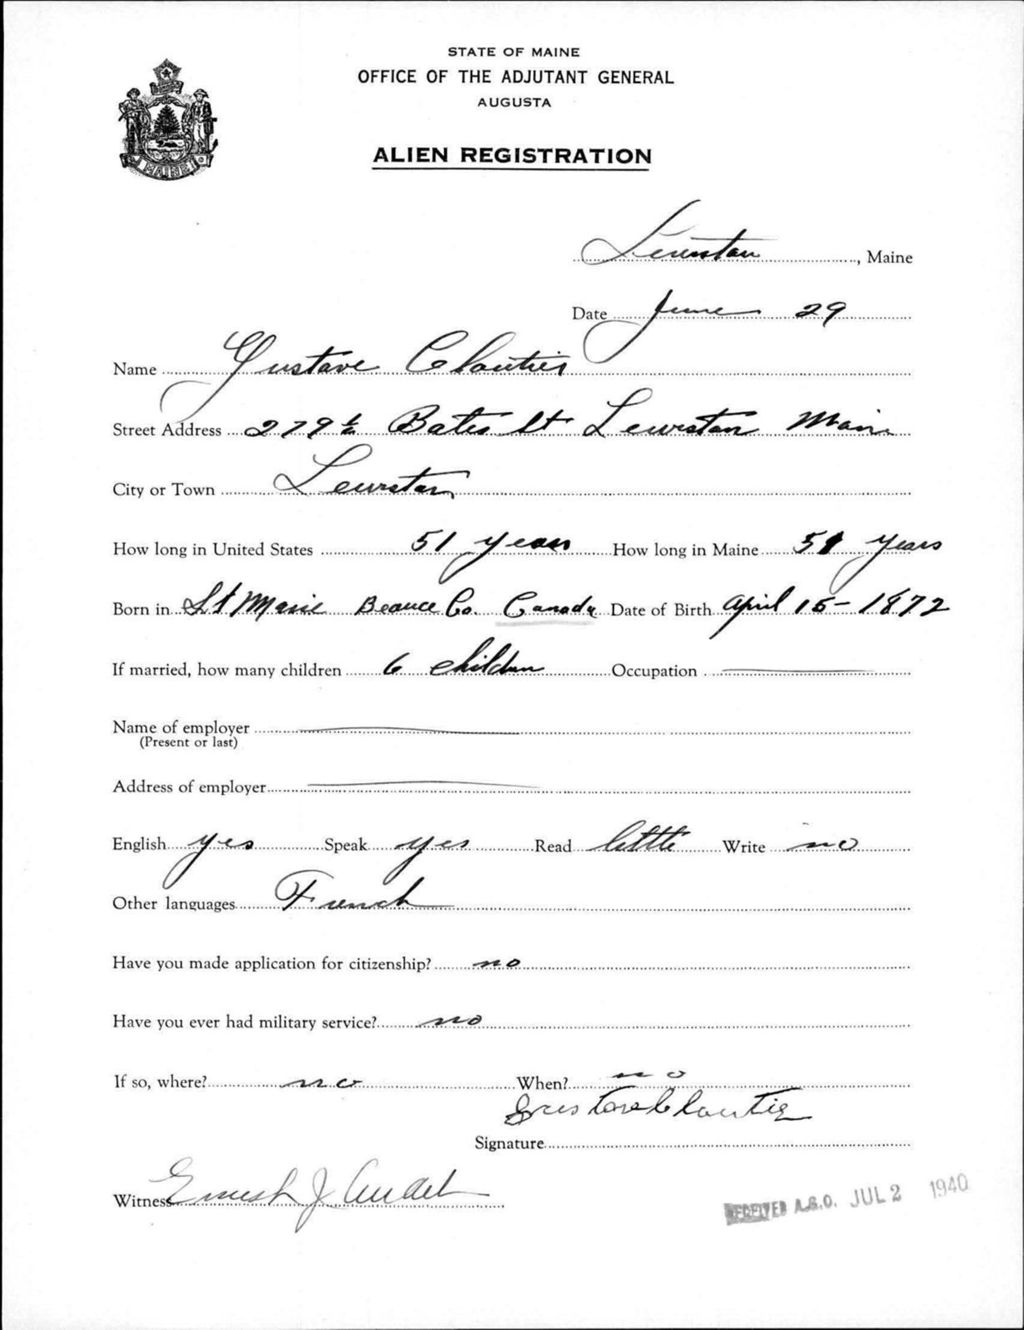 STATE OF MAINE
OFFICE OF THE ADJUTANT GENERAL
AUGUSTA
ALIEN REGISTRATION
MAINE
Lewiston, Maine
Date June 29
Name Gustave Cloutier
Street Address 279 ½ Bates St Lewiston Maine
City or Town Lewiston
How long in United States 51 years How long in Maine 51 years
Born in St Marie Beauce Co. Canada Date of Birth April 15 - 1872
If married, how many children 6 children Occupation
Name of employer
(Present or last)
Address of employer
English yes Speak yes Read little Write no
Other languages French
Have you made application for citizenship? no
Have you ever had military service? no
If so, where? no When? no
Gustave Cloutier
Signature
Witness Ernest J
RECEIVED A.G.O. JUL 2 1940